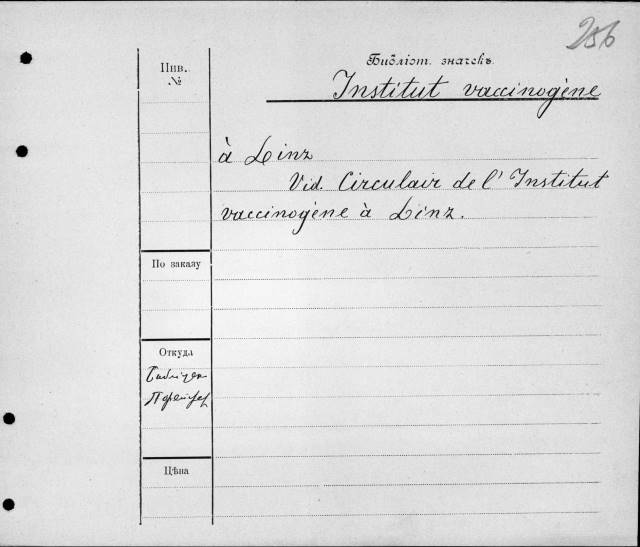 256
Инв. №
Библіот. значекъ
Institut vaccinogène
à Linz
Vid. Circulair de l'Institut
vaccinogène à Linz.
По заказу
Откуда
Цѣна